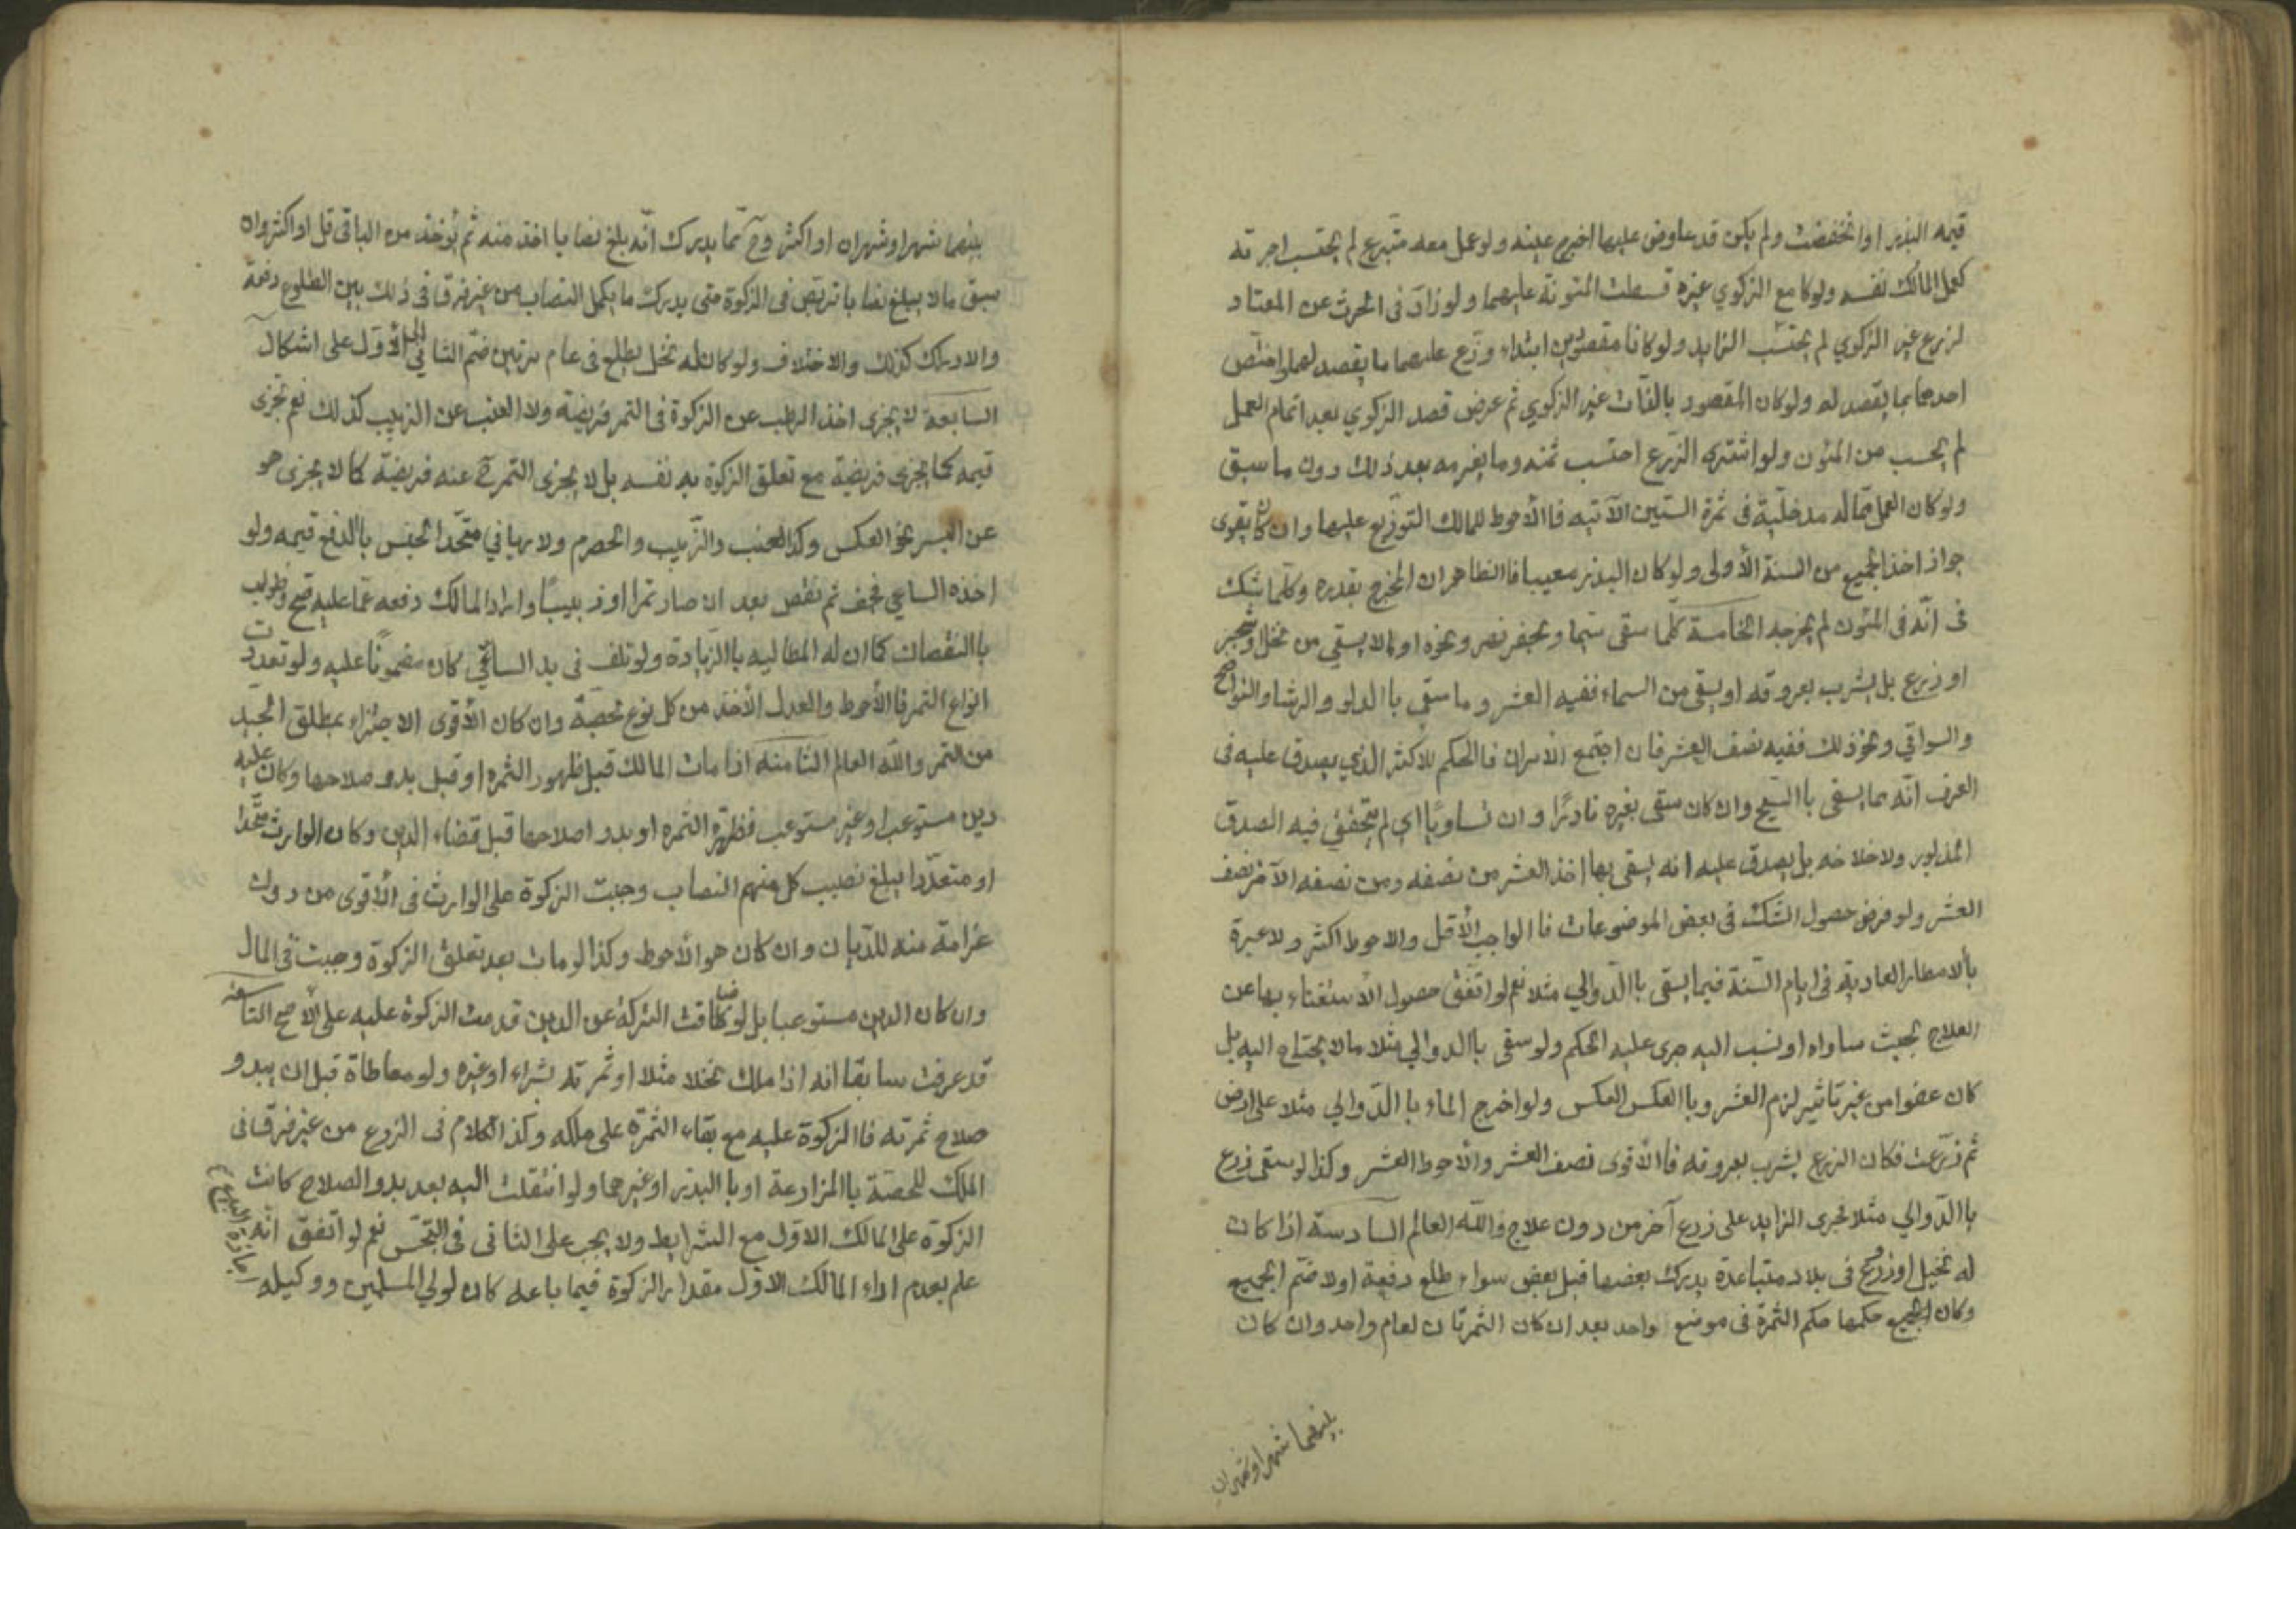 قيمه البذر او انخفضت ولم يكن قد عاوض عليها اخرج عينه ولو عمل معه متبرع لم يحتسب اجرته
كعمل المالك نفسه ولو كا مع الزكوي غيره قسطت المئونة عليهما ولو زاد فى الحرث عن المعتاد
لزرع غير الزكوي لم يحتسب الزايد ولو كانا مقصودين ابتداء وزع عليهما ما يقصد لهما واختص
احدهما بما يقصد له ولو كان المقصود بالذات غير الزكوي ثم عرض قصد الزكوي بعد اتمام العمل
لم يحسب من المئون ولو اشترى الزرع احتسب ثمنه وما يغرمه بعد ذلك دون ما سبق
ولو كان العمل مما له مدخلية فى ثمرة السنين الآتيه فاالأحوط للمالك التوزيع عليها وان كان يقوى
جواز اخذ الجميع من السنة الأولى ولو كان البذر معيبا فاالظاهر ان المخرج بقدره وكلما شك
فى انه فى المئون لم يخرجه الخامسة كلما سقى سيحا وبحفر نهر ونحوه او مالا يسقي من نخل او شجر
او زرع بل يشرب بعروقه او يسقى من السماء ففيه العشر وما سقي باالدلو والرشا والنواضح
والسواقي ونحو ذلك ففيه نصف العشر فان اجتمع الامران فاالحكم للاكثر الذي يصدق عليه فى
العرف انه مما يسقى باالسيح وان كان سقى بغيره نادرًا وان تساويا اي لم يتحقق فيه الصدق
المذبور ولا خلافه بل يصدق عليه انه يسقى بها اخذ العشر من نصفه ومن نصفه الآخر نصف
العشر ولو فرض حصول الشك فى بعض الموضوعات فاالواجب الأقل والاحوط اكثر ولا عبرة
بالامطار العاديه فى ايام السنة فيما يسقى باالدوالي مثلا نعم لو اتفق حصول الاستغناء بها عن
العلاج بحيث ساواه او نسب اليه جرى عليه الحكم ولو سقى باالدوالي مثلا مالا يحتاج اليه بل
كان عفوا من غير تاثير لزم العشر وباالعكس العكس ولو اخرج الماء باالدوالي مثلا على ارض
ثم زرعت فكان الزرع يشرب بعروقه فاالأقوى نصف العشر والأحوط العشر وكذا لو سقى زرع
باالدوالي مثلا فجرى الزايد على زرع آخر من دون علاج والله العالم السادسة اذا كان
له نخيل او زروع فى بلاد متباعدة يدرك بعضها قبل بعض سواء طلع دفعة اولا ضم الجميع
وكان الجميع حكمها حكم الثمرة فى موضع واحد بعد ان كان الثمرتان لعام واحد وان كان
بينهما شهر او شهران
بينهما شهر او شهران او اكثر وح مما يدرك انه بلغ نصابا اخذ منه ثم يؤخذ من الباقى قل او اكثر وان
سبق مالا يبلغ نصابا تربص فى الزكوة حتى يدرك ما يكمل النصاب من غير فرق فى ذلك بين الطلوع دفعة
والادراك كذلك والاختلاف ولو كان له نخل يطلع فى عام مرتين ضم الثانى الى الأول على اشكال
السابعة لا يجزى اخذ الرطب عن الزكوة فى التمر فريضة ولا العنب عن الزبيب كذلك نعم تجزى
قيمه كما يجزى فريضة مع تعلق الزكوة به نفسه بل لا يجزى التمر ح عنه فريضة كما لا يجزى هو
عن البسر نحو العكس وكذا العنب والزبيب والحصرم ولا ربا في متحد الجنس باالدفع قيمه ولو
اخذه الساعي فجف ثم نقص بعد ان صار تمرا او زبيبًا واراد المالك دفعه عما عليه صح وطولب
باالنقصان كما ان له المطالبه باالزيادة ولو تلف فى يد الساعي كان مضمونًا عليه ولو تعددت
انواع التمر فاالأحوط والعدل الأخذ من كل نوع بحصة وان كان الأقوى الاجتزاء بمطلق الجيد
من التمر والله العالم الثامنه اذا مات المالك قبل ظهور الثمره او قبل بدو صلاحها وكان عليه
دين مستوعب او غير مستوعب فظهر الثمره او بدو اصلاحها قبل قضاء الدين وكان الوارث متحدا
او متعددا يبلغ نصيب كل منهم النصاب وجبت الزكوة على الوارث فى الأقوى من دون
غرامة منه للديان وان كان هو الأحوط وكذا لو مات بعد تعلق الزكوة وجبت فى المال
وان كان الدين مستوعبا بل لو ضاقت التركة عن الدين قدمت الزكوة عليه على الأصح التاسعه
قد عرفت سابقا انه اذا ملك نخلا مثلا او ثمرته بشراء او غيره ولو معاطاة قبل ان يبدو
صلاح ثمرته فاالزكوة عليه مع بقاء الثمرة على ملكه وكذا الكلام فى الزرع من غير فرق فى
الملك للحصة باالمزارعة او باالبذر او غيرهما ولو انتقلت اليه بعد بدو الصلاح كانت
الزكوة على المالك الاول مع الشرايط ولا يجب على الثانى فى التجسس نعم لو اتفق انه
علم بعدم اداء المالك الاول مقدار الزكوة فيما باعه كان لولي المسلمين ووكيله